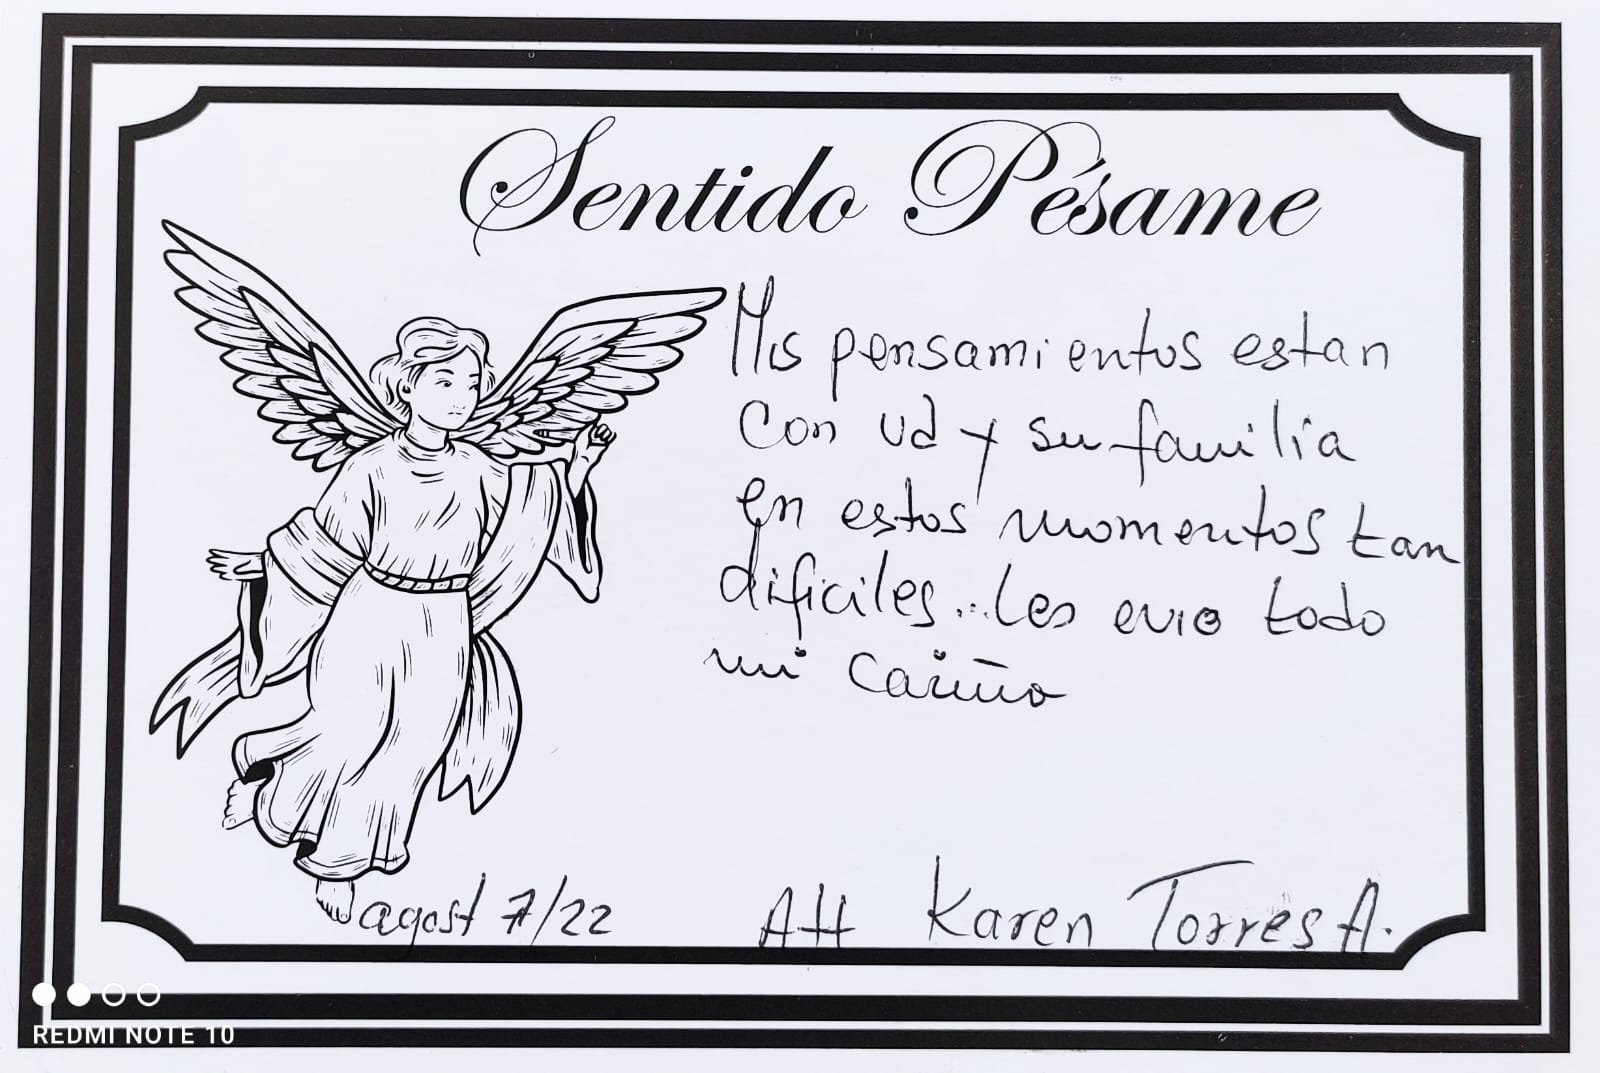 Sentido Pésame
Mis pensamientos estan
con ud y su familia
en estos momentos tan
dificiles...les evio todo
mi cariño
agost 7/22
Att Karen Torres A.
REDMI NOTE 10